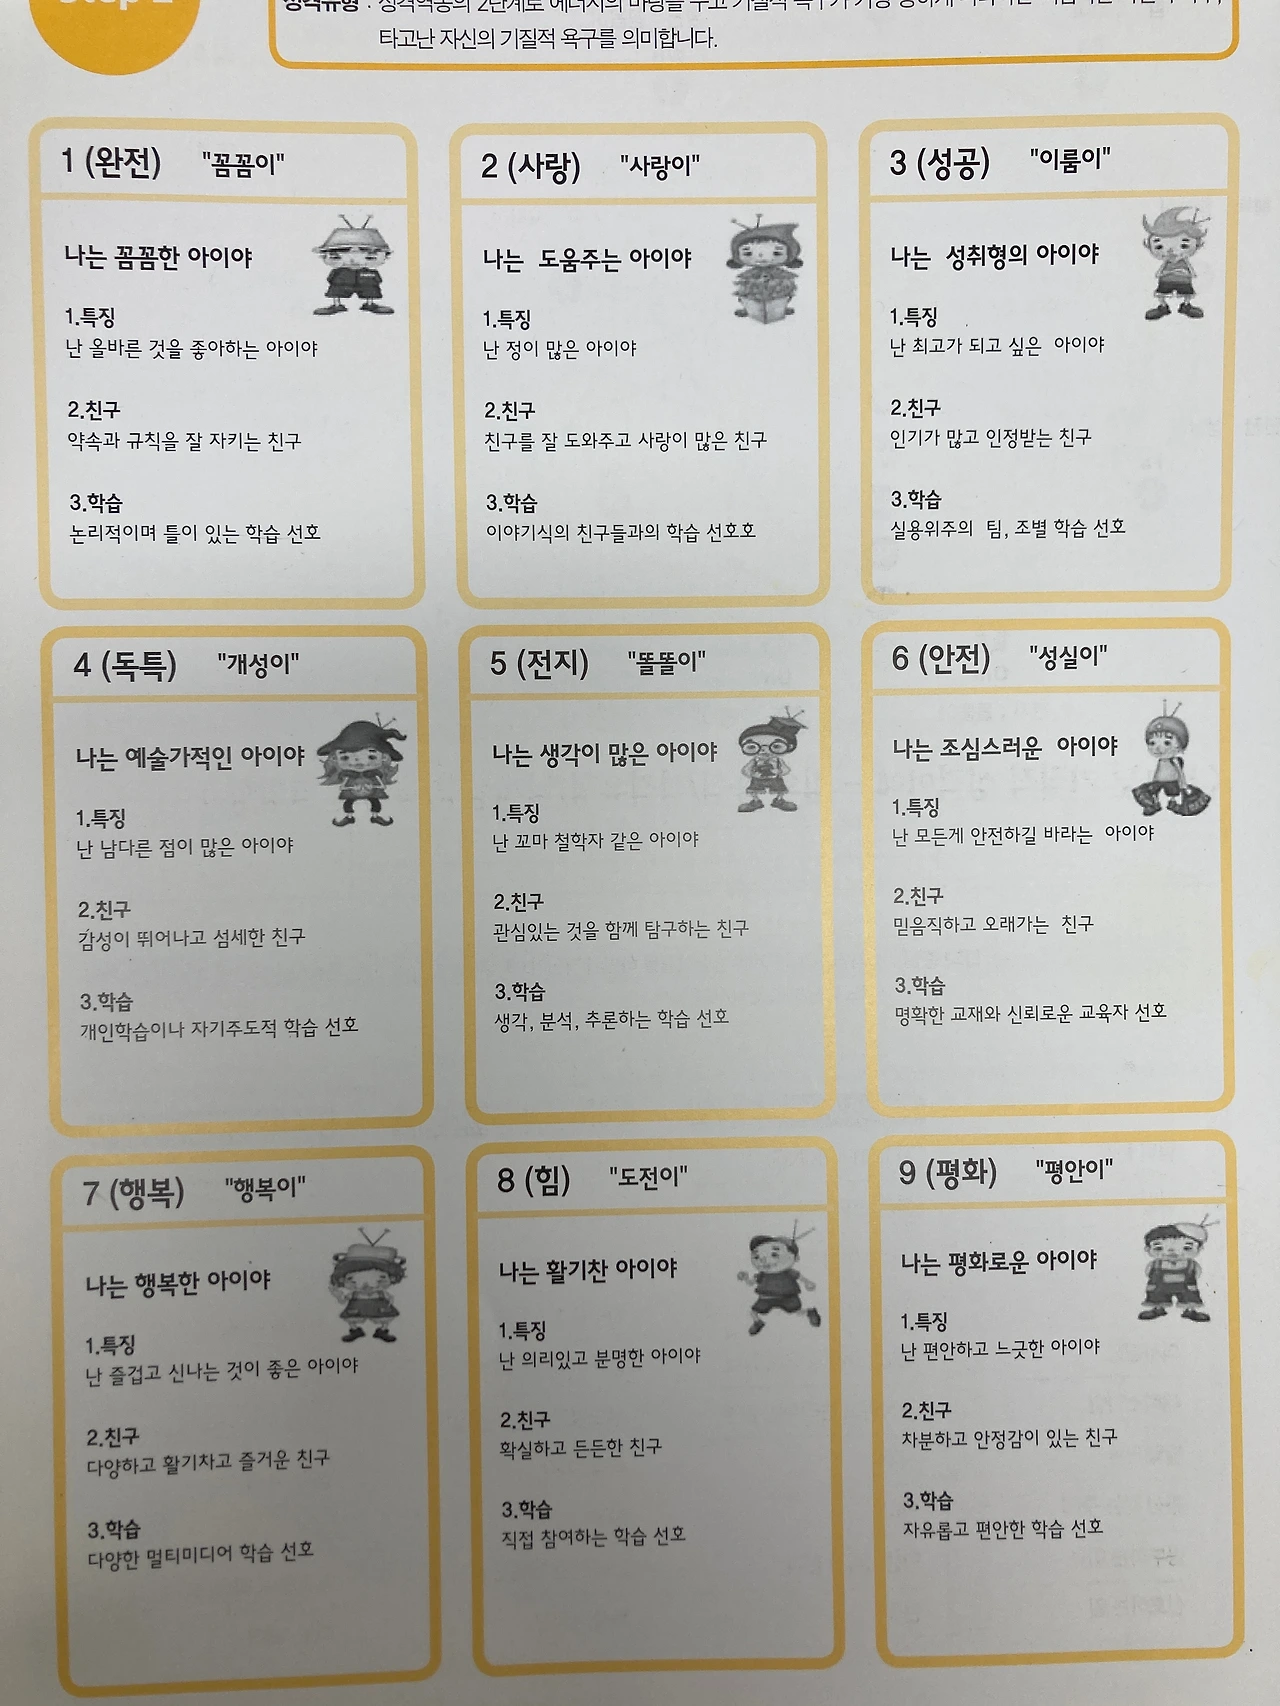 Step 2
성격유형 : 성격역동의 2단계로 에너지의
타고난 자신의 기질적 욕구를 의미합니다.
1 (완전) "꼼꼼이"
나는 꼼꼼한 아이야
1.특징
난 올바른 것을 좋아하는 아이야
2.친구
약속과 규칙을 잘 자키는 친구
3.학습
논리적이며 틀이 있는 학습 선호
2 (사랑) "사랑이"
나는 도움주는 아이야
1.특징
난 정이 많은 아이야
2.친구
친구를 잘 도와주고 사랑이 많은 친구
3.학습
이야기식의 친구들과의 학습 선호호
3 (성공) "이룸이"
나는 성취형의 아이야
1.특징
난 최고가 되고 싶은 아이야
2.친구
인기가 많고 인정받는 친구
3.학습
실용위주의 팀, 조별 학습 선호
4 (독특) "개성이"
나는 예술가적인 아이야
1.특징
난 남다른 점이 많은 아이야
2.친구
감성이 뛰어나고 섬세한 친구
3.학습
개인학습이나 자기주도적 학습 선호
5 (전지) "똘똘이"
나는 생각이 많은 아이야
1.특징
난 꼬마 철학자 같은 아이야
2.친구
관심있는 것을 함께 탐구하는 친구
3.학습
생각, 분석, 추론하는 학습 선호
6 (안전) "성실이"
나는 조심스러운 아이야
1.특징
난 모든게 안전하길 바라는 아이야
2.친구
믿음직하고 오래가는 친구
3.학습
명확한 교재와 신뢰로운 교육자 선호
7 (행복) "행복이"
나는 행복한 아이야
1.특징
난 즐겁고 신나는 것이 좋은 아이야
2.친구
다양하고 활기차고 즐거운 친구
3.학습
다양한 멀티미디어 학습 선호
8 (힘) "도전이"
나는 활기찬 아이야
1.특징
난 의리있고 분명한 아이야
2.친구
확실하고 든든한 친구
3.학습
직접 참여하는 학습 선호
9 (평화) "평안이"
나는 평화로운 아이야
1.특징
난 편안하고 느긋한 아이야
2.친구
차분하고 안정감이 있는 친구
3.학습
자유롭고 편안한 학습 선호